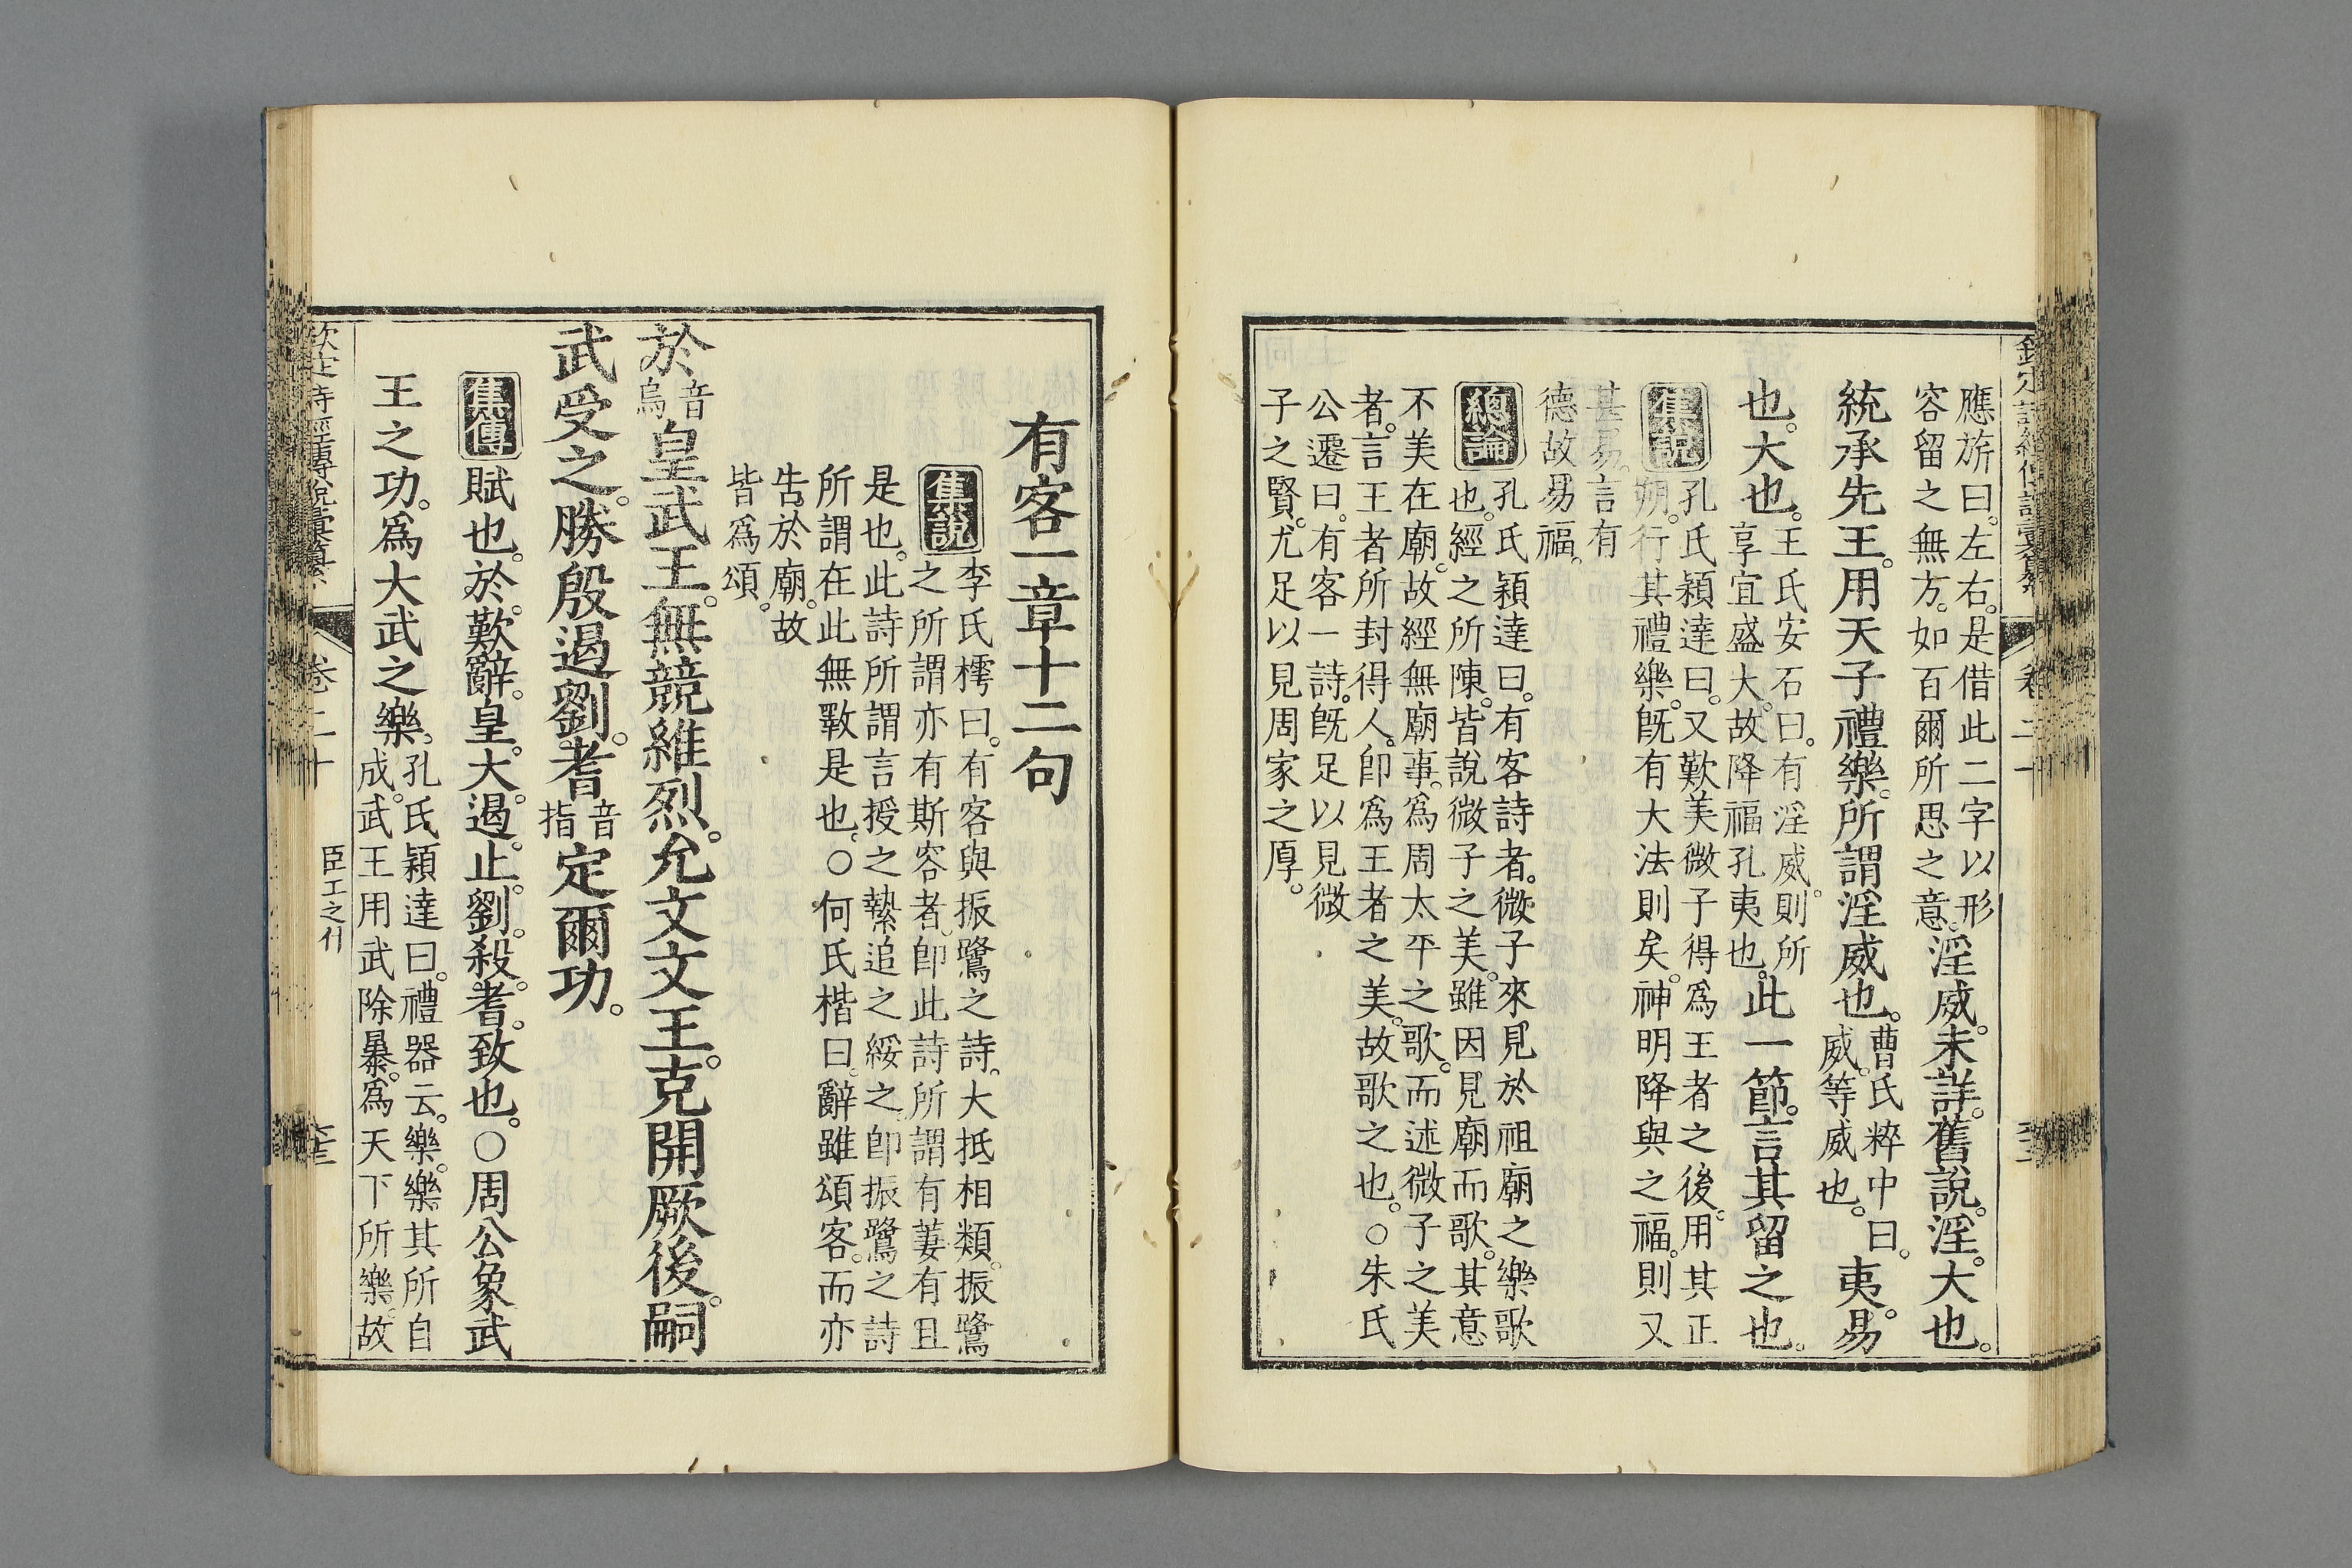 應旂曰。左右。是借此二字以形
容留之無方。如百爾所思之意。
淫威。未詳。舊說。淫。大也。
統承先王。用天子禮樂。所謂淫威也。
曹氏粹中曰。
威。等威也。
夷。易
也。大也。
王氏安石曰。有淫威。則所
享宜盛大。故降福孔夷也。
此一節。言其留之也。
集說
孔氏穎達曰。又歎美微子得爲王者之後。用其正
朔。行其禮樂。旣有大法則矣。神明降與之福。則又
甚易。言有
德故易福。
總論
孔氏穎達曰。有客詩者。微子來見於祖廟之樂歌
也。經之所陳。皆說微子之美。雖因見廟而歌。其意
不美在廟。故經無廟事。爲周太平之歌。而述微子之美
者。言王者所封得人。卽爲王者之美。故歌之也。○朱氏
公遷曰。有客一詩。旣足以見微
子之賢。尤足以見周家之厚。
有客一章十二句
集說
李氏樗曰。有客與振鷺之詩。大抵相類。振鷺
之所謂亦有斯容者。卽此詩所謂有萋有且
是也。此詩所謂言授之縶追之綏之。卽振鷺之詩
所謂在此無斁是也。○何氏楷曰。辭雖頌客。而亦
告於廟。故
皆爲頌。
於
音
烏
皇武王。無競維烈。允文文王。克開厥後。嗣
武受之。勝殷遏劉。耆
音
指
定爾功。
集傳
賦也。於。歎辭。皇。大。遏。止。劉。殺。耆。致也。○周公象武
王之功。爲大武之樂。
孔氏穎達曰。禮器云。樂。樂其所自
成。武王用武除暴。爲天下所樂。故
卷二十
臣工之什